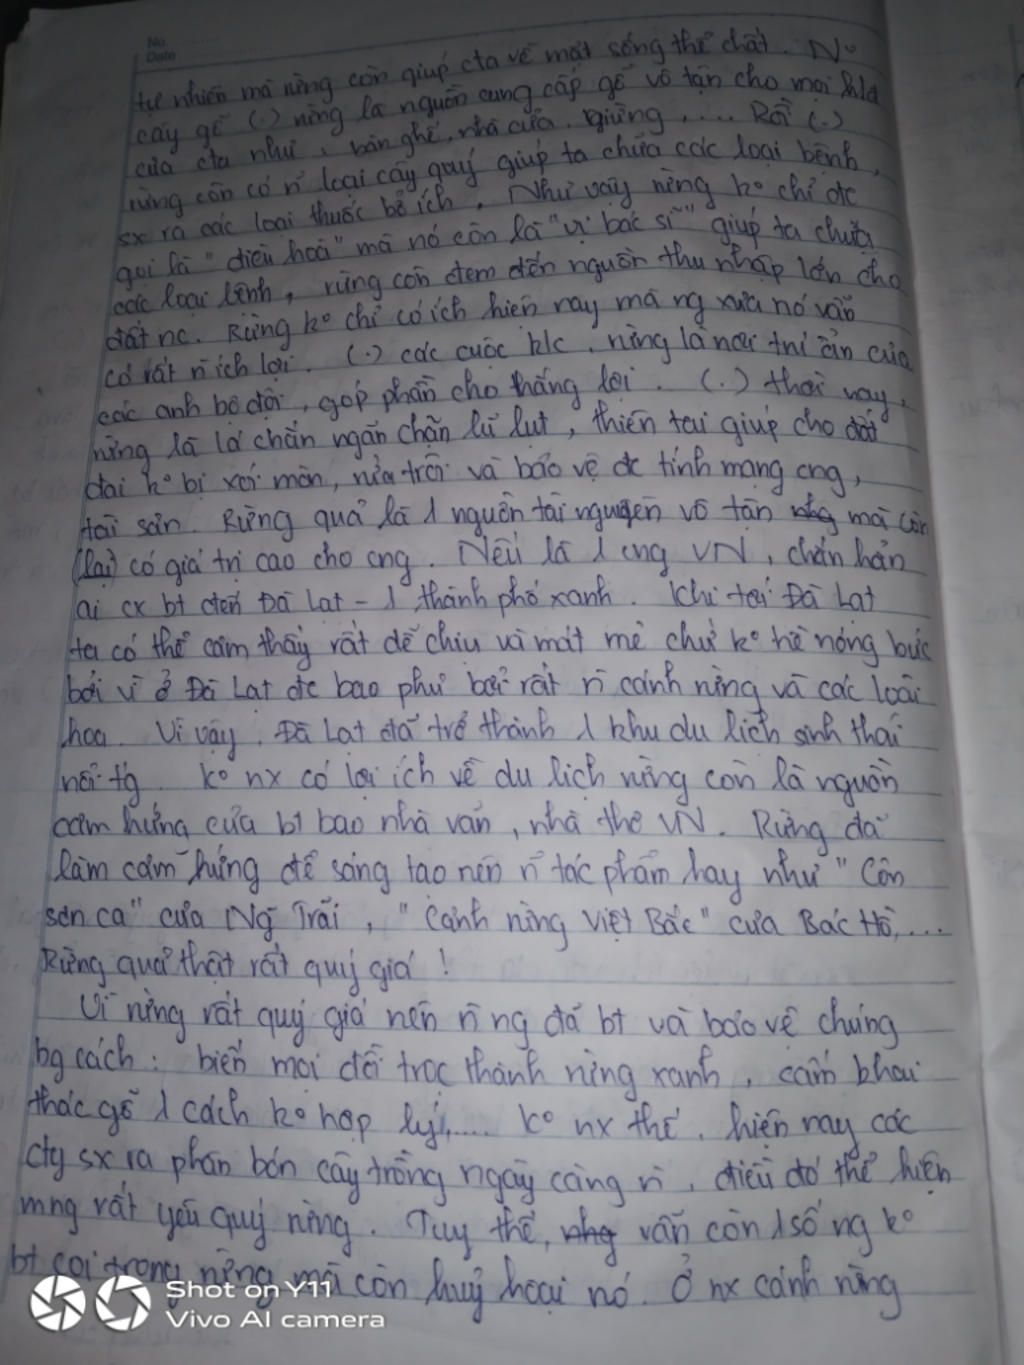 No.
Date
tự nhiên mà rừng còn giúp cta về mặt sống thể chất. N°
cây gỗ (.) rừng là nguồn cung cấp gỗ vô tận cho mọi
của cta như, bàn ghế, nhà cửa, giường, .... Rồi (.)
rừng còn có n̄ loại cây quý giúp ta chữa các loại bệnh,
sx ra các loại thuốc bổ ích. Như vậy rừng k° chỉ đc
gọi là "điều hoà" mà nó còn là "vị bác sĩ" giúp ta chữa
các loại bệnh, rừng còn đem đến nguồn thu nhập lớn cho
đất nc. Rừng k° chỉ có ích hiện nay mà ng xưa nó vẫn
có rất n̄ ích lợi. (.) các cuộc k/c, rừng là nơi trú ẩn của
các anh bộ đội, góp phần cho thắng lợi. (.) thời nay,
rừng là lá chắn ngăn chặn lũ lụt, thiên tai giúp cho đất
đai k° bị xói mòn, rửa trôi và bảo vệ đc tính mạng cng,
tài sản. Rừng quả là 1 nguồn tài nguyên vô tận nhg mà còn
(lại) có giá trị cao cho cng. Nếu là 1 cng VN, chắn hẳn
ai cx bt đến Đà Lạt - 1 thành phố xanh. Khi tới Đà Lạt
ta có thể cảm thấy rất dễ chịu và mát mẻ chứ k° hề nóng bức
bởi vì ở Đà Lạt đc bao phủ bởi rất n̄ cánh rừng và các loài
hoa. Vì vậy, Đà Lạt đã trở thành 1 khu du lịch sinh thái
nổi tg. k° nx có lợi ích về du lịch rừng còn là nguồn
cảm hứng của bt bao nhà văn, nhà thơ VN. Rừng đã
làm cảm hứng để sáng tạo nên n̄ tác phẩm hay như "Côn
sơn ca" của Ng̃ Trãi, "Cảnh rừng Việt Bắc" của Bác Hồ,...
Rừng quả thật rất quý giá!
Vì rừng rất quý giá nên n̄ ng đã bt và bảo vệ chúng
bg cách: biến mọi đồi trọc thành rừng xanh, cấm khai
thác gỗ 1 cách k° hợp lý,.... k° nx thế, hiện nay các
cty sx ra phân bón cây trồng ngày càng n̄, điều đó thể hiện
mng rất yêu quý rừng. Tuy thế, nhg vẫn còn 1 số ng k°
bt coi trọng rừng mà còn huỷ hoại nó. Ở nx cánh rừng
Shot on Y11
Vivo AI camera